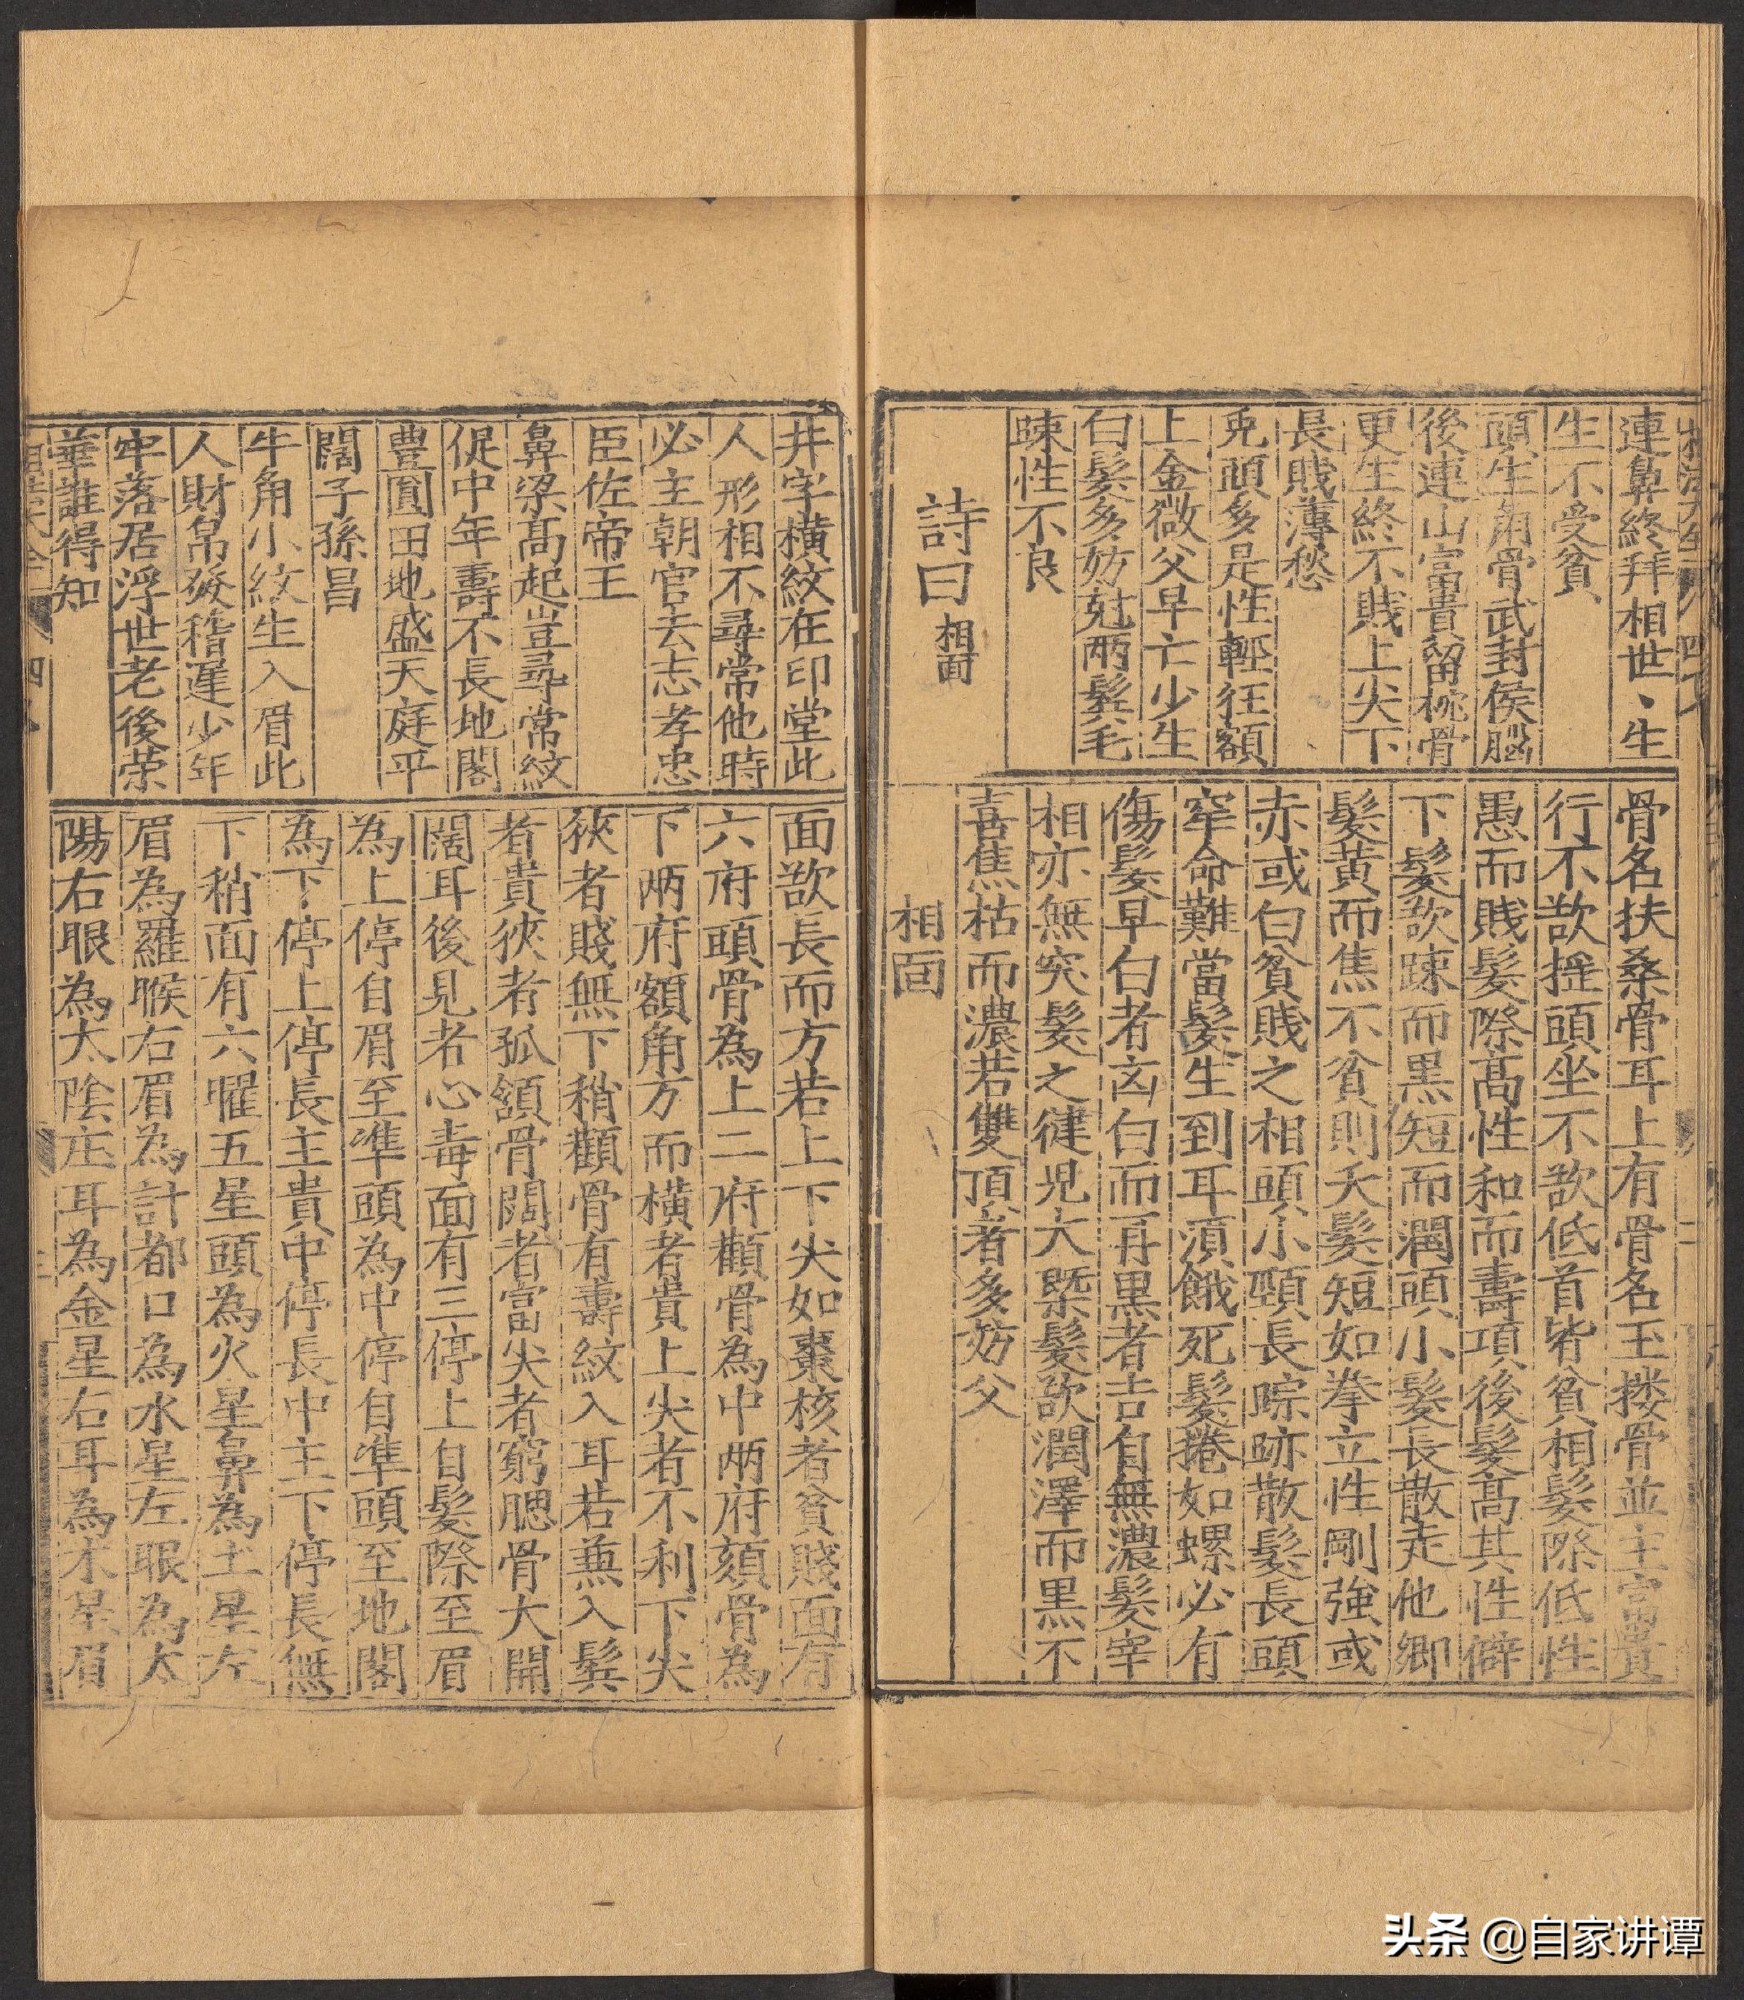 連鼻終拜相世、生
生不受貧
頭生角骨武封侯腦
後連山富貴留枕骨
更生終不賤上尖下
長賤薄愁
免頭多是性輕狂額
上金微父早亡少生
白髮多妨尅兩鬂毛
踈性不良
詩曰相面
骨名扶桑骨耳上有骨名玉搂骨並主富貴
行不欲搖頭坐不欲低首皆貧相髮際低性
愚而賤髮際髙性和而壽項後髮髙其性僻
下髮欲踈而黒短而潤頭小髮長散走他鄉
髮黄而焦不貧則夭髮短如拳立性剛強或
赤或白貧賤之相頭小頸長踪跡散髮長頭
窄命難當髮生到耳湏餓死髮捲如螺必有
傷髮早白者凶白而再黒者吉自無濃髮宰
相亦無突髮之健児大槩髮欲潤澤而黒不
喜焦枯而濃若雙頂者多妨父
相面
井字橫紋在印堂此
人形相不尋常他時
必主朝官去志孝忠
臣佐帝王
鼻梁髙起豈尋常紋
促中年壽不長地閣
豊圓田地盛天庭平
闊子孫昌
牛角小紋生入眉此
人財帛發稽遲少年
牢落居浮世老後荣
華誰得知
面欲長而方若上下尖如棗核者貧賤面有
六府頭骨為上二府顴骨為中兩府頦骨為
下兩府額角方而橫者貴上尖者不利下尖
狹者賤無下稍顴骨有壽紋入耳若無入鬂
者貴狹者孤頷骨闊者當尖者窮腮骨大開
闊耳後見者心毒面有三停上自髮際至眉
為上停自眉至準頭為中停自準頭至地閣
為下停上停長主貴中停長中主下停長無
下稍面有六曜五星頭為火星鼻為土星左
眉為羅睺右眉為計都口為水星左眼為太
陽右眼為太陰左耳為金星右耳為木星眉
头条 @自家讲谭